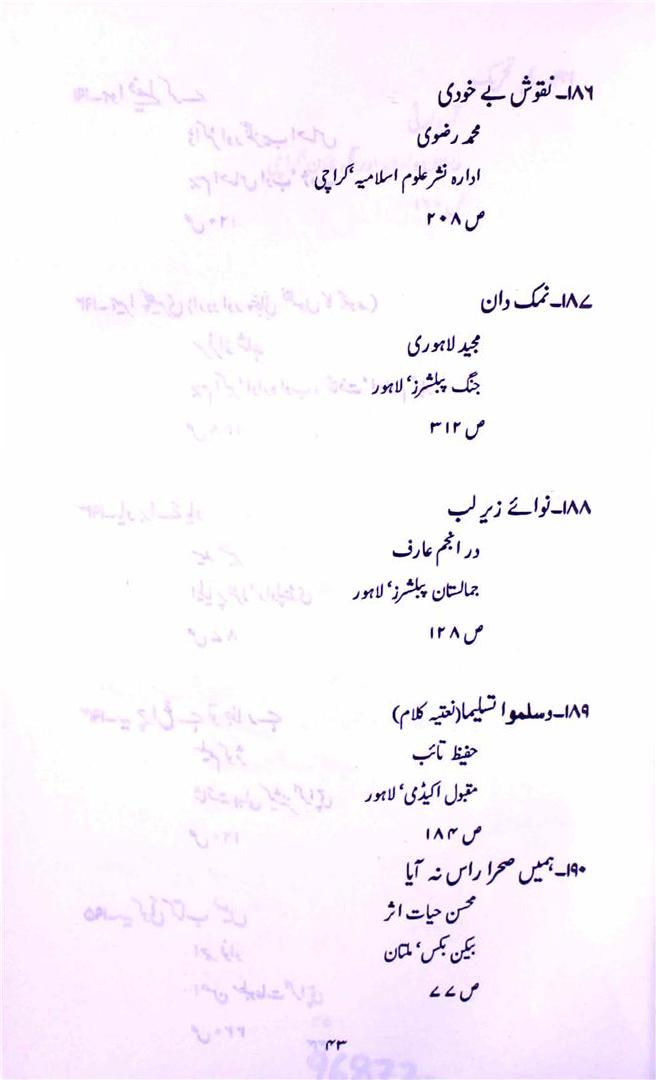 ۱۸۶۔ نقوش بے خودی
محمد رضوی
ادارہ نشر علوم اسلامیہ، کراچی
ص ۲۰۸
۱۸۷۔ نمک دان
مجید لاہوری
جنگ پبلشرز، لاہور
ص ۳۱۲
۱۸۸۔ نوائے زیر لب
در انجم عارف
جمالستان پبلشرز، لاہور
ص ۱۲۸
۱۸۹۔ وسلموا تسلیما (نعتیہ کلام)
حفیظ تائب
مقبول اکیڈمی، لاہور
ص ۱۸۴
۱۹۰۔ ہمیں صحرا راس نہ آیا
محسن حیات اثر
بیکن بکس، ملتان
ص ۷۷
۴۳